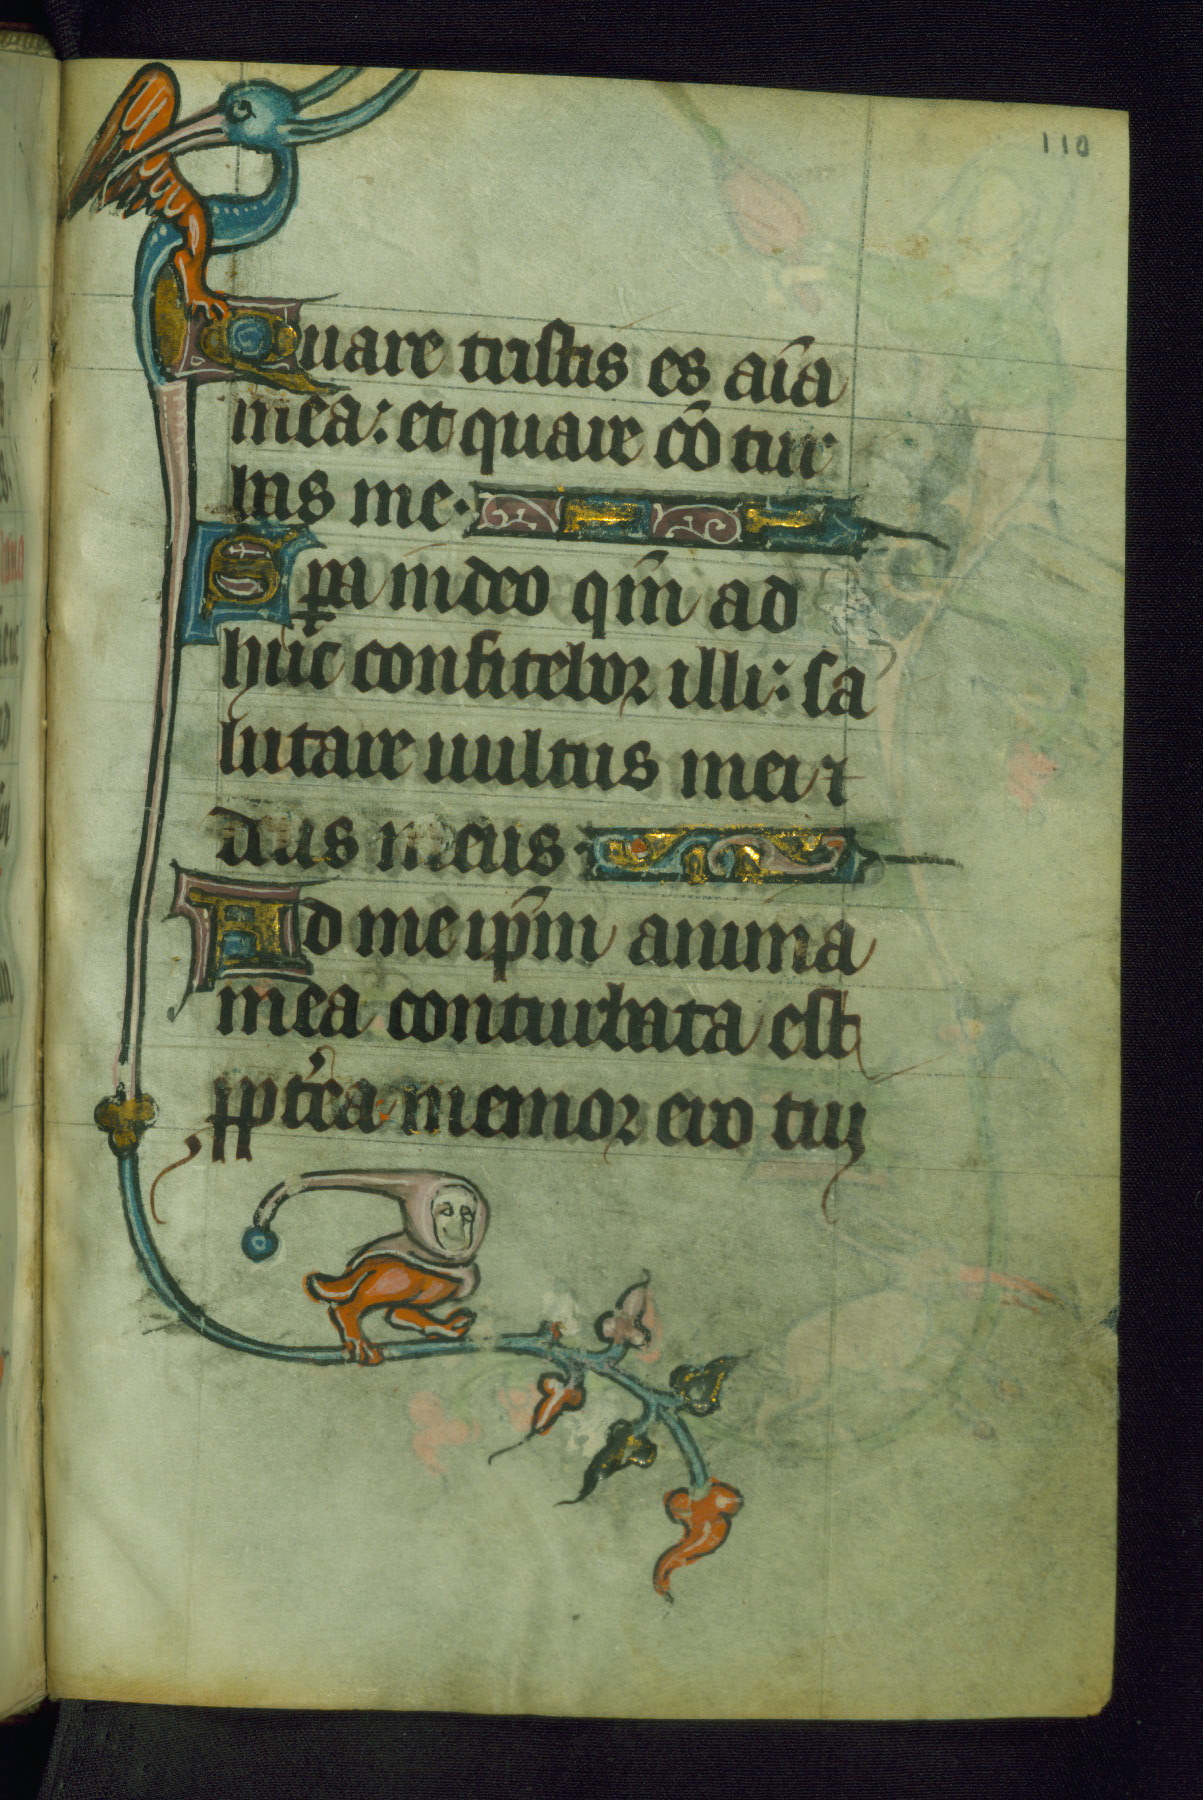 110
Quare tristis es aĩa
mea: et quare cõ tur
bas me.
Spa in deo qm̃ ad
huc confitebor illi: sa
lutare uultus mei ⁊
deus meus.
Ad me ip̃m anima
mea conturbata est
ꝓpterea memor ero tui